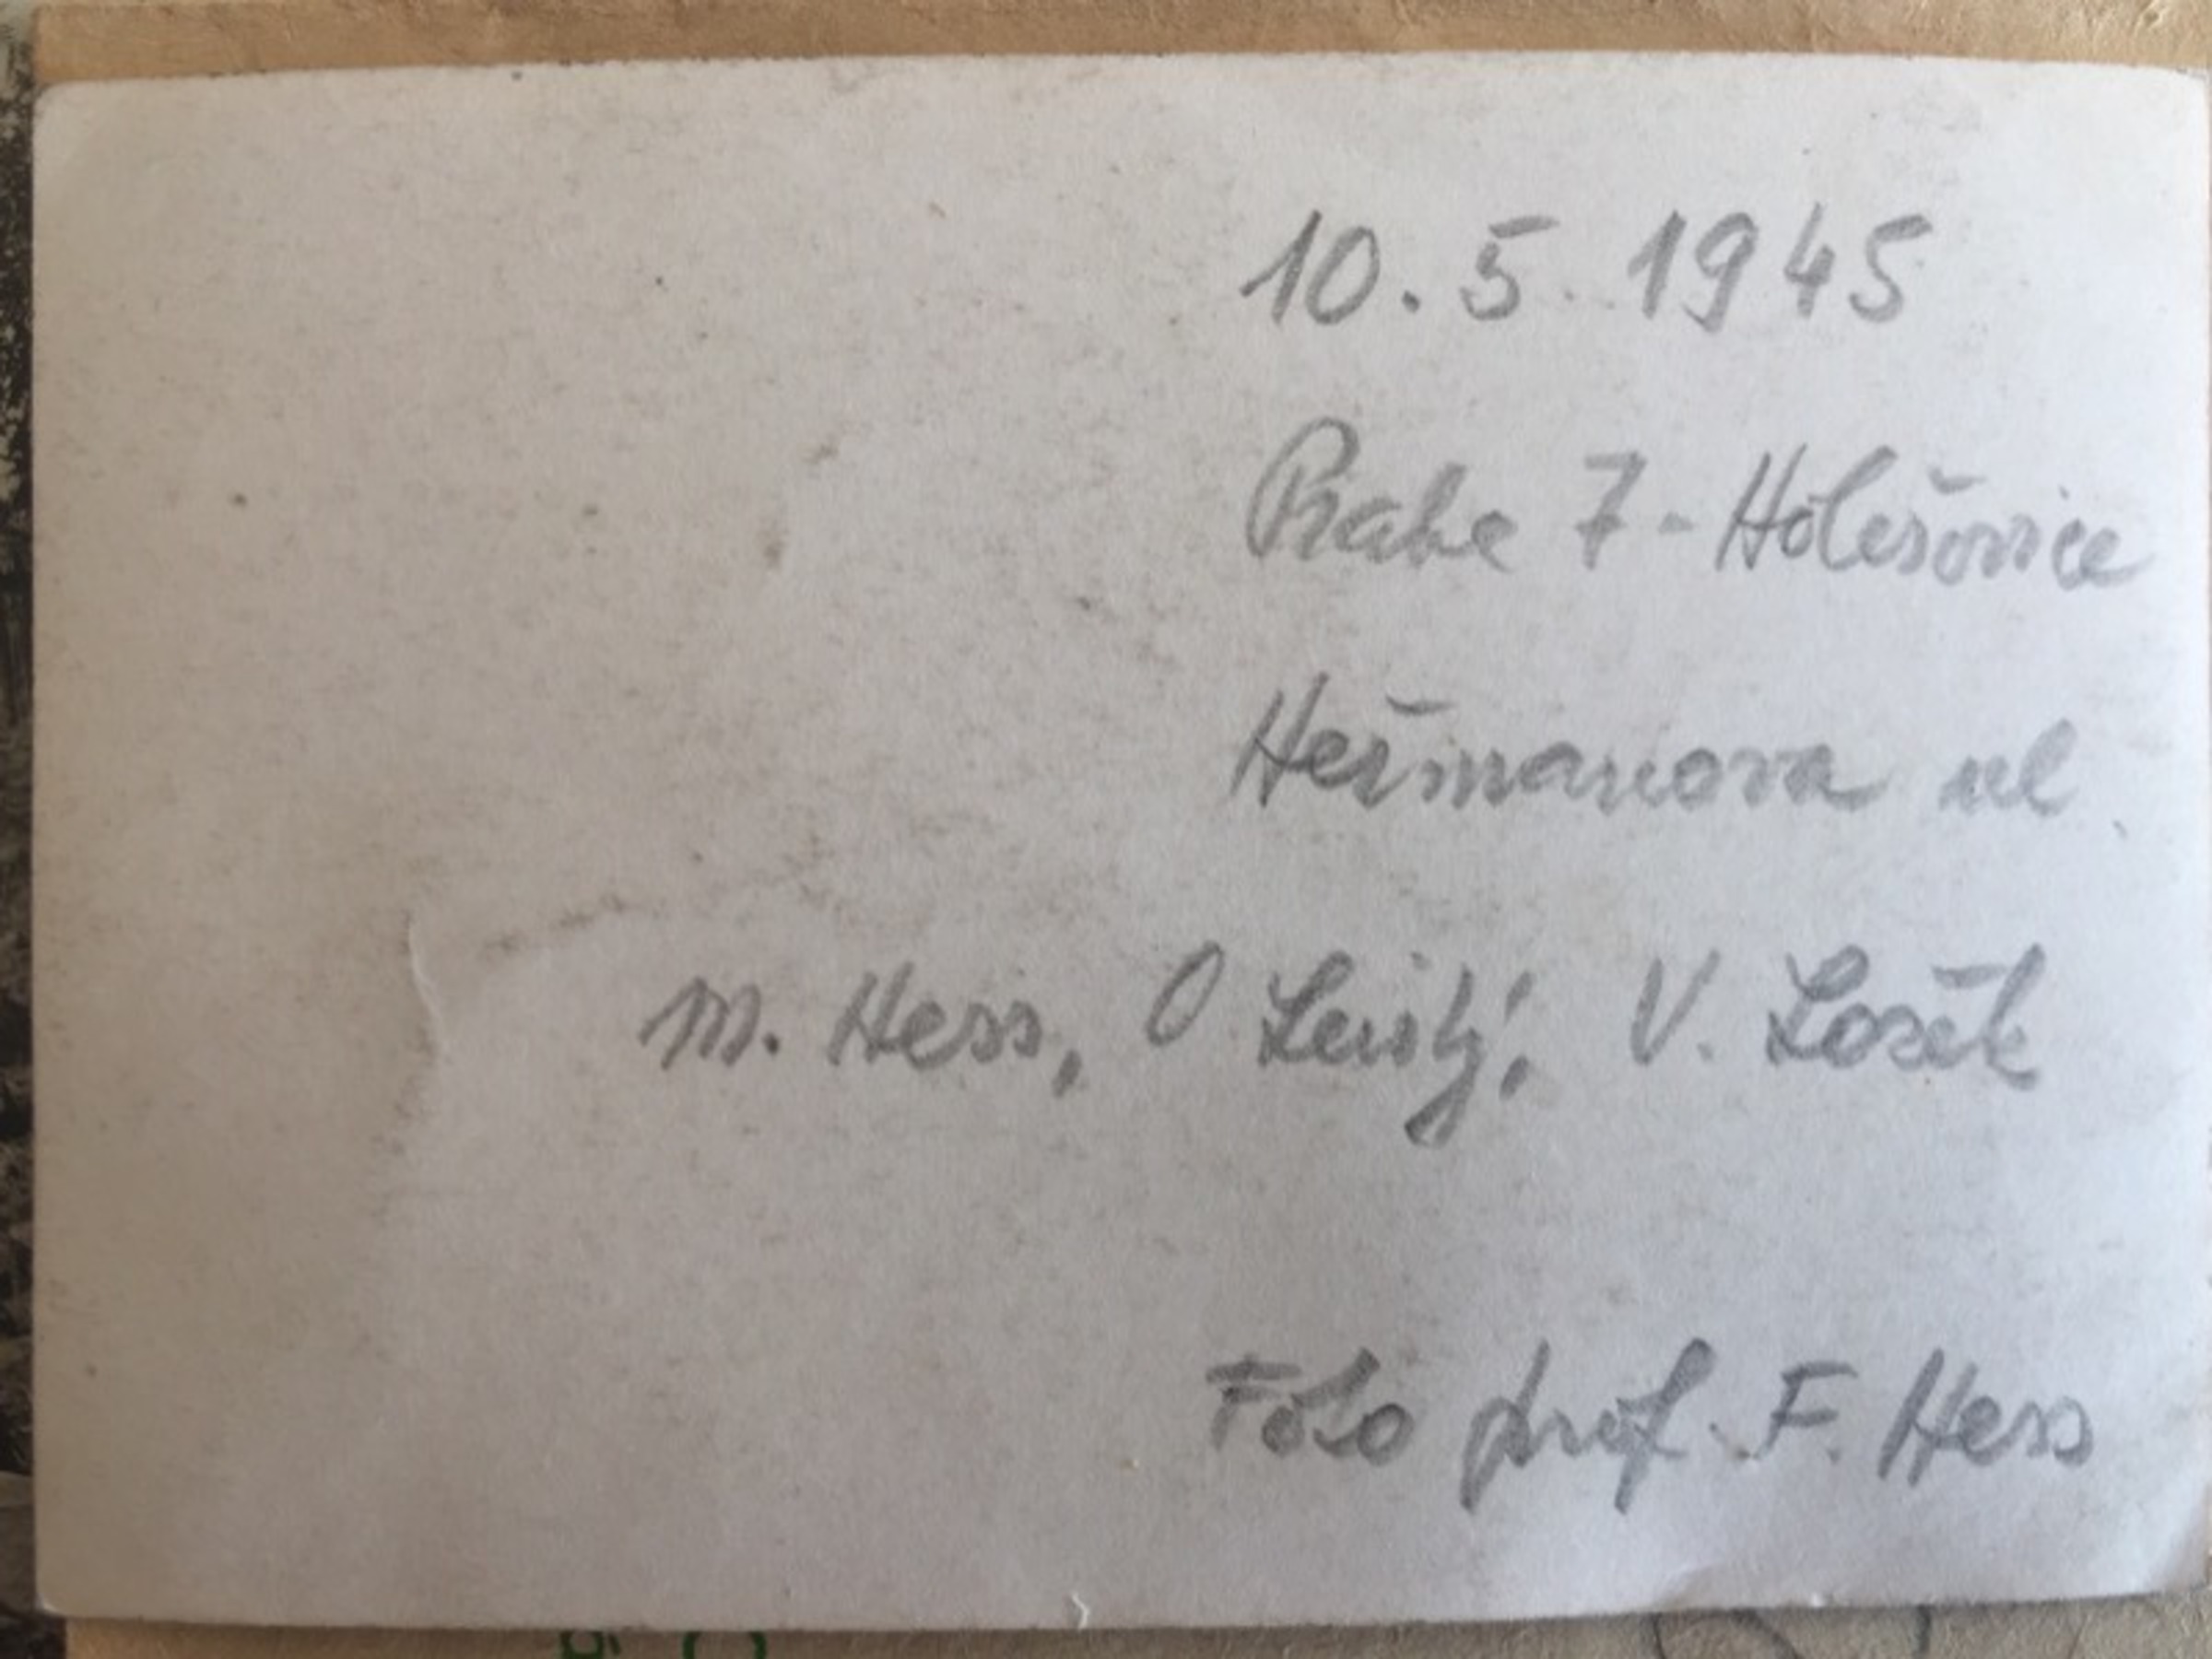 10. 5. 1945
Praha 7 - Holešovice
Heřmanova ul.
M. Hess, O V.
Foto prof. F. Hess